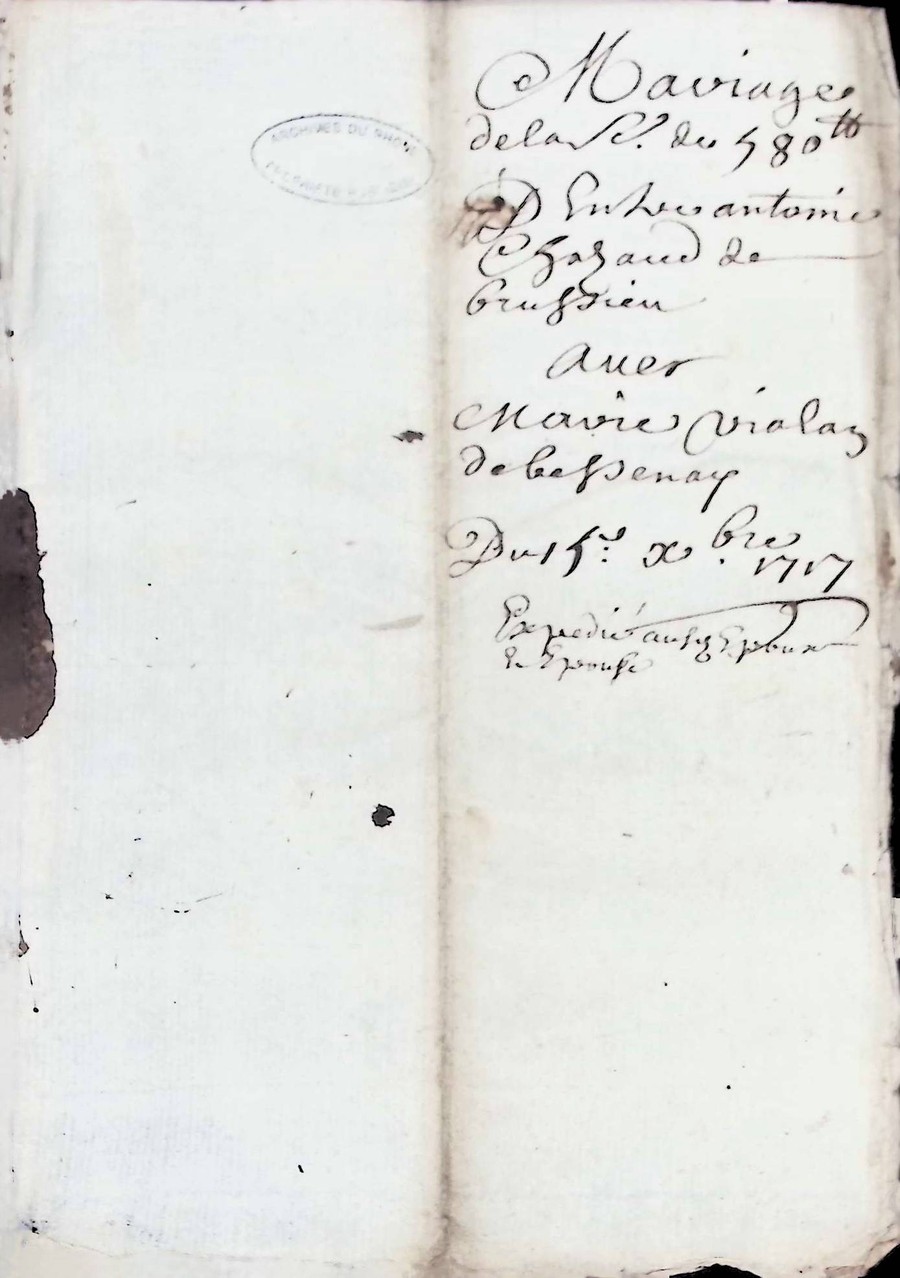 ARCHIVES DU RHONE
Mariage
de la S.e de 580tt
D Entre antoine
Chazaud de
brussieu
Avec
Marie Violay
de bessenay
Du 15.e xbre
1717
Expedié aus.d Epoux
Et Epouse